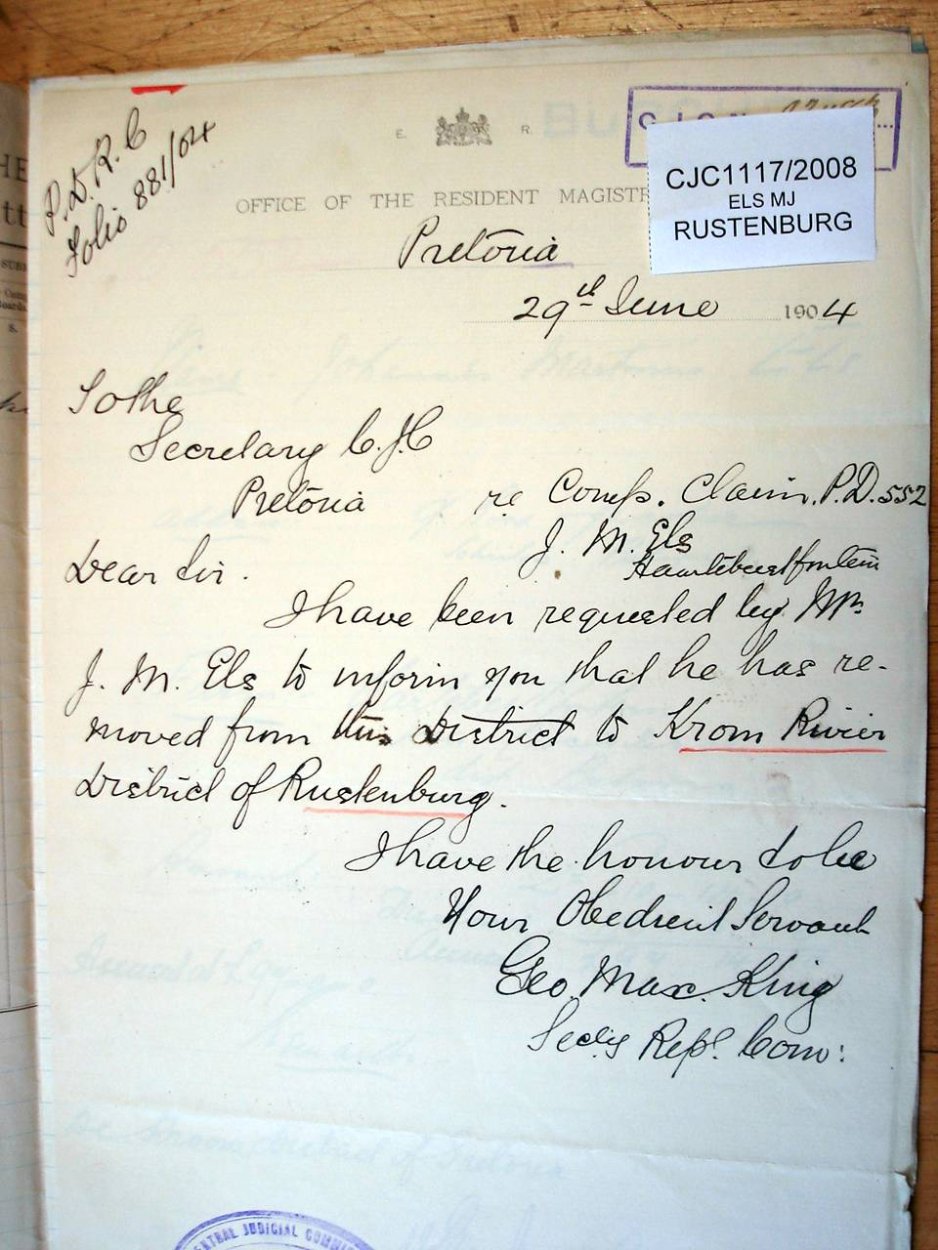 P.D.R.C
Folio 881/04
E. R.
C.J.C. N
CJC1117/2008
ELS MJ
RUSTENBURG
OFFICE OF THE RESIDENT MAGISTR
Pretoria
29th June 1904
To the
Secretary C.J.C
Pretoria re Comp. Claim. P.D. 552
J. M. Els
Haartebeestfontein
Dear Sir.
I have been requested by Mr
J. M. Els to inform you that he has re-
moved from this District to Krom Rivier
District of Rustenburg.
I have the honour to be
Your Obedient Servant
Geo. Max. King
Secty Repl. Com:
CENTRAL JUDICIAL COMMI